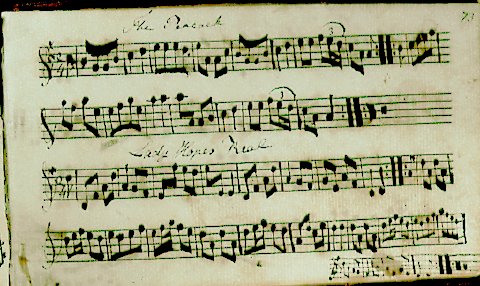 The Peacock
73
3
Lady Hopes Reel